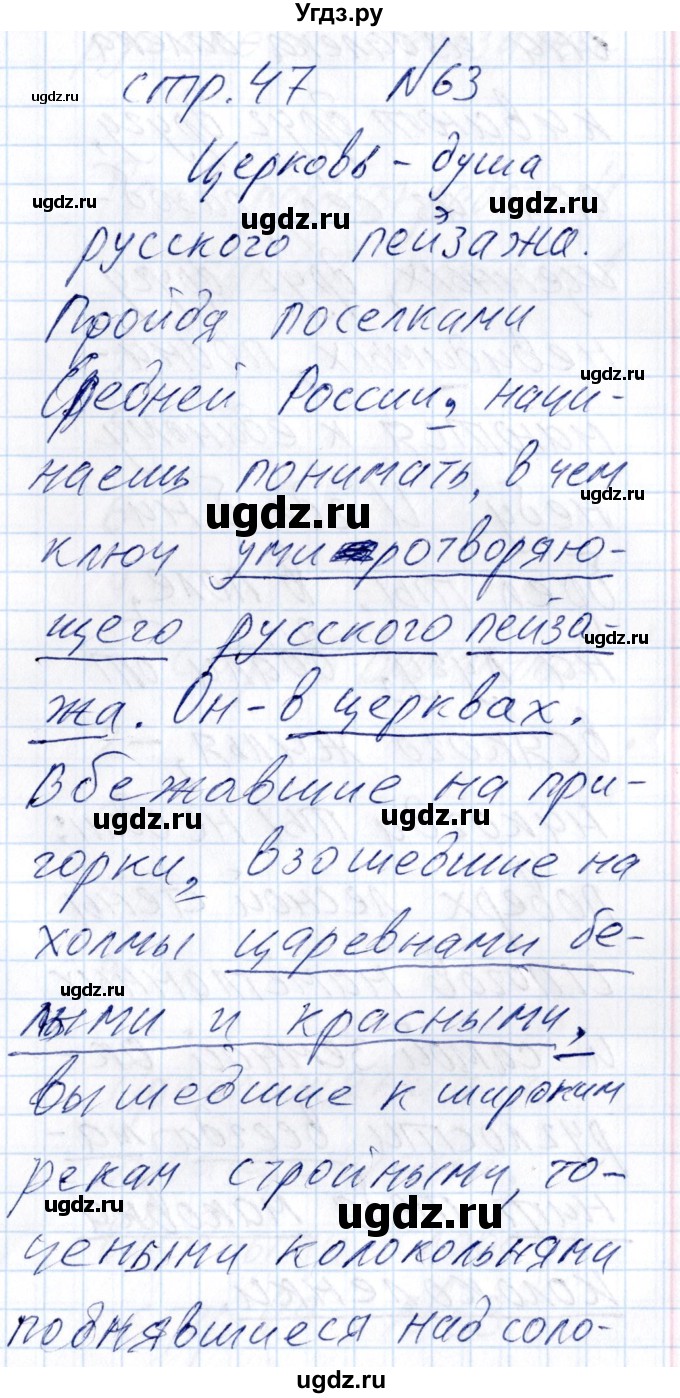 Угдз.ру
стр. 47 №63
Церковь - душа
русского пейзажа.
Пройдя поселками
Средней России, начи-
наешь понимать, в чем
ключ умиротворяю-
щего русского пейза-
жа. Он - в церквах.
Взбежавшие на при-
горки, взошедшие на
холмы царевнами бе-
лыми и красными,
вышедшие к широким
рекам стройными, то-
чеными колокольнями
поднявшиеся над соло-
ugdz.ru
ugdz.ru
ugdz.ru
ugdz.ru
ugdz.ru
ugdz.ru
ugdz.ru
ugdz.ru
ugdz.ru
ugdz.ru
ugdz.ru
ugdz.ru
ugdz.ru
ugdz.ru